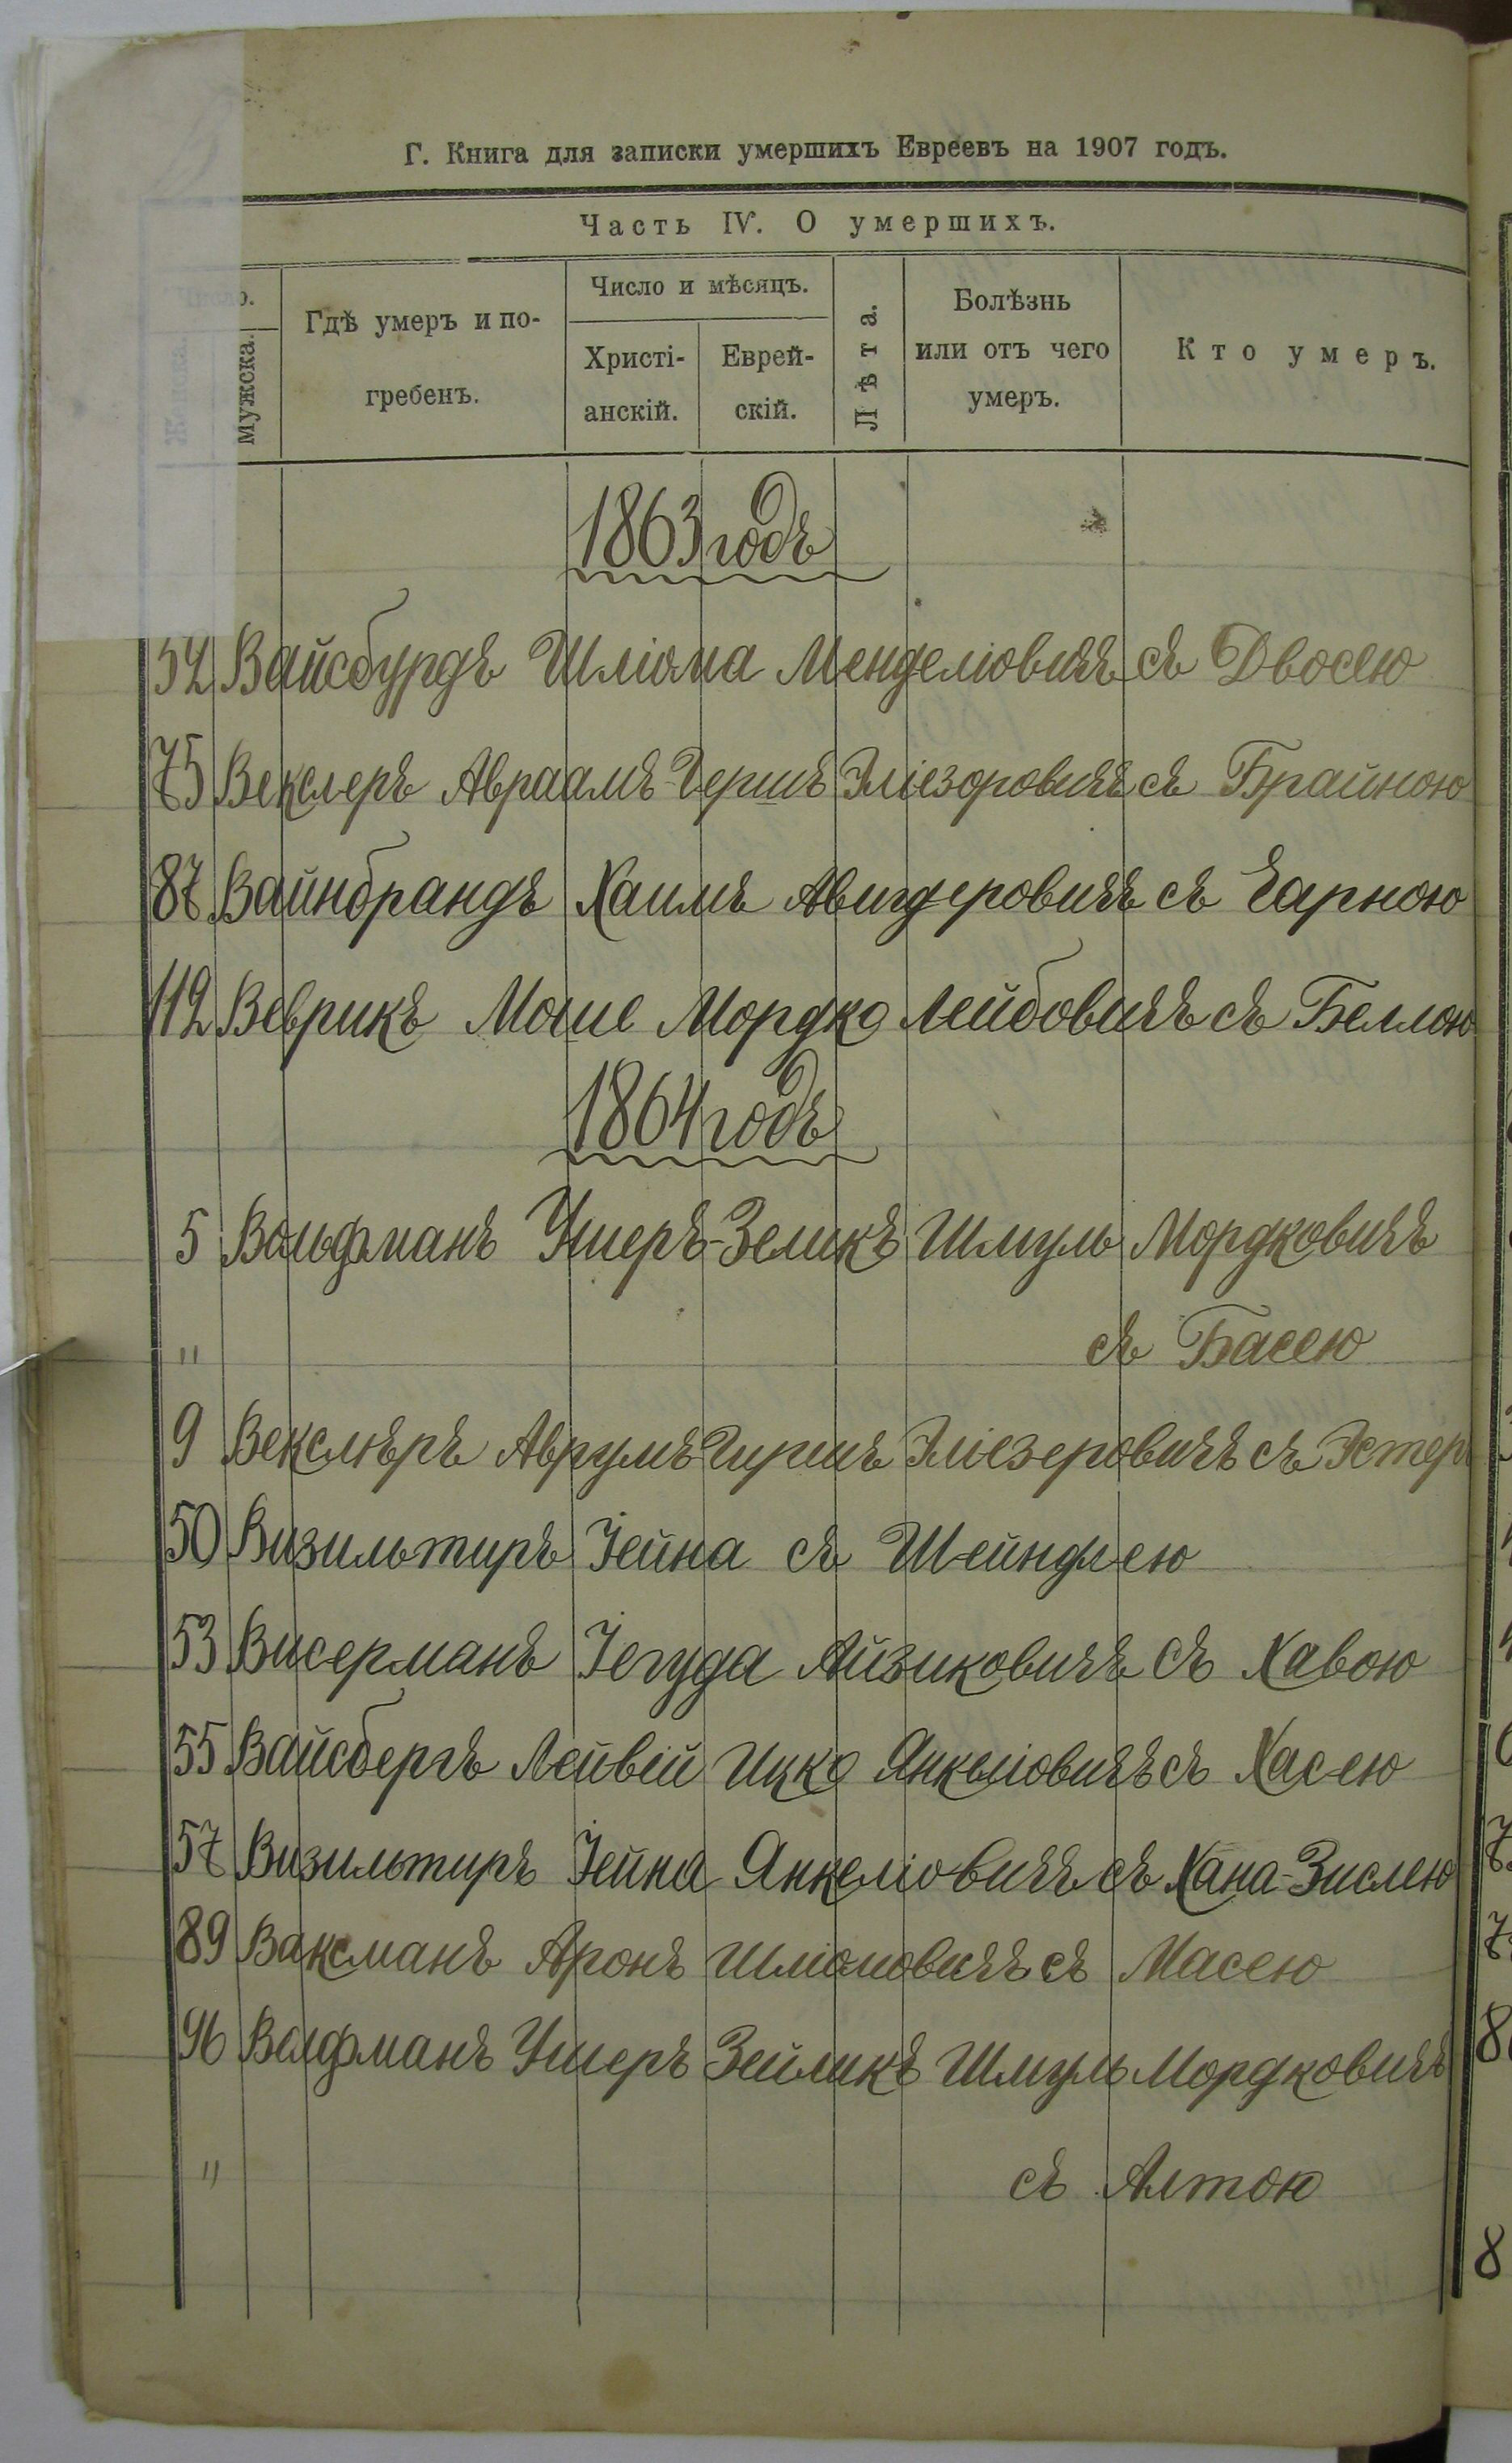 Г. Книга для записки умершихъ Евреевъ на 1907 годъ.
Часть IV. О умершихъ.
Мужска.
Гдѣ умеръ и по-
гребенъ.
Число и мѣсяцъ.
Христі-
анскій.
Еврей-
скій.
Лѣта.
Болѣзнь
или отъ чего
умеръ.
Кто умеръ.
1863 годъ
52 Вайсбурдъ Шліома Менделіовичъ съ Двосею
75 Векслеръ Авраамъ-Гершъ Эліезоровичъ съ Брайною
87 Вайнбрандъ Хаимъ Авигдеровичъ съ Чарною
112 Веврикъ Моше Мордко Лейбовичъ съ Беллою
1864 годъ
5 Вольфманъ Ушеръ-Зеликъ Шмуль Мордковичъ
" съ Басею
9 Векслѣръ Аврумъ-Гиршъ Эліезеровичъ съ Эстер
50 Визильтиръ Іейна съ Шейндлею
53 Висерманъ Іегуда Айзиковичъ съ Хавою
55 Вайсбергъ Лейвій Ицко Янкеліовичъ съ Хасею
57 Визильтиръ Іейна Янкеліовичъ съ Хана-Зислею
89 Ваксманъ Аронъ Шліомовичъ съ Масею
96 Волфманъ Ушеръ Зейликъ Шмуль Мордковичъ
" съ Алтою